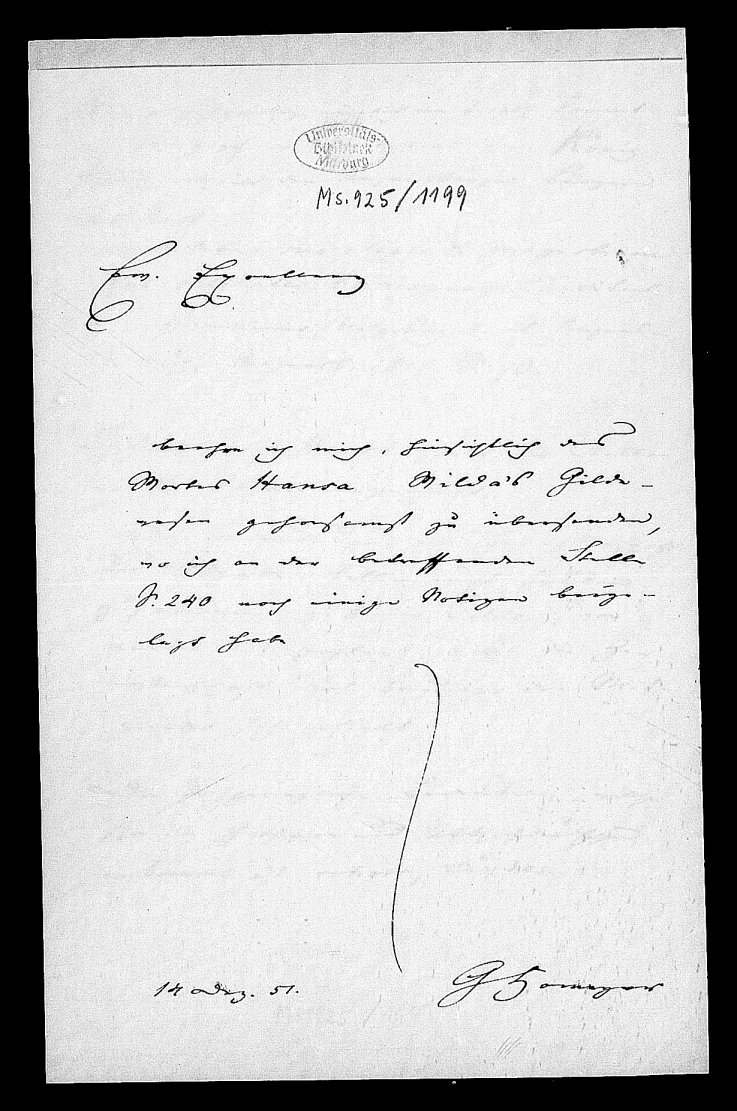 Universitäts-
Bibliothek
Marburg
Ms. 925/1199
Ew. Excellenz
beehre ich mich, hinsichtlich des
Wortes Hansa Wilda's Gilde-
wesen gehorsamst zu übersenden,
wo ich an der betreffenden Stelle
S. 240 noch einige Notizen beige-
legt habe
14 Dez. 51.
G Homeyer